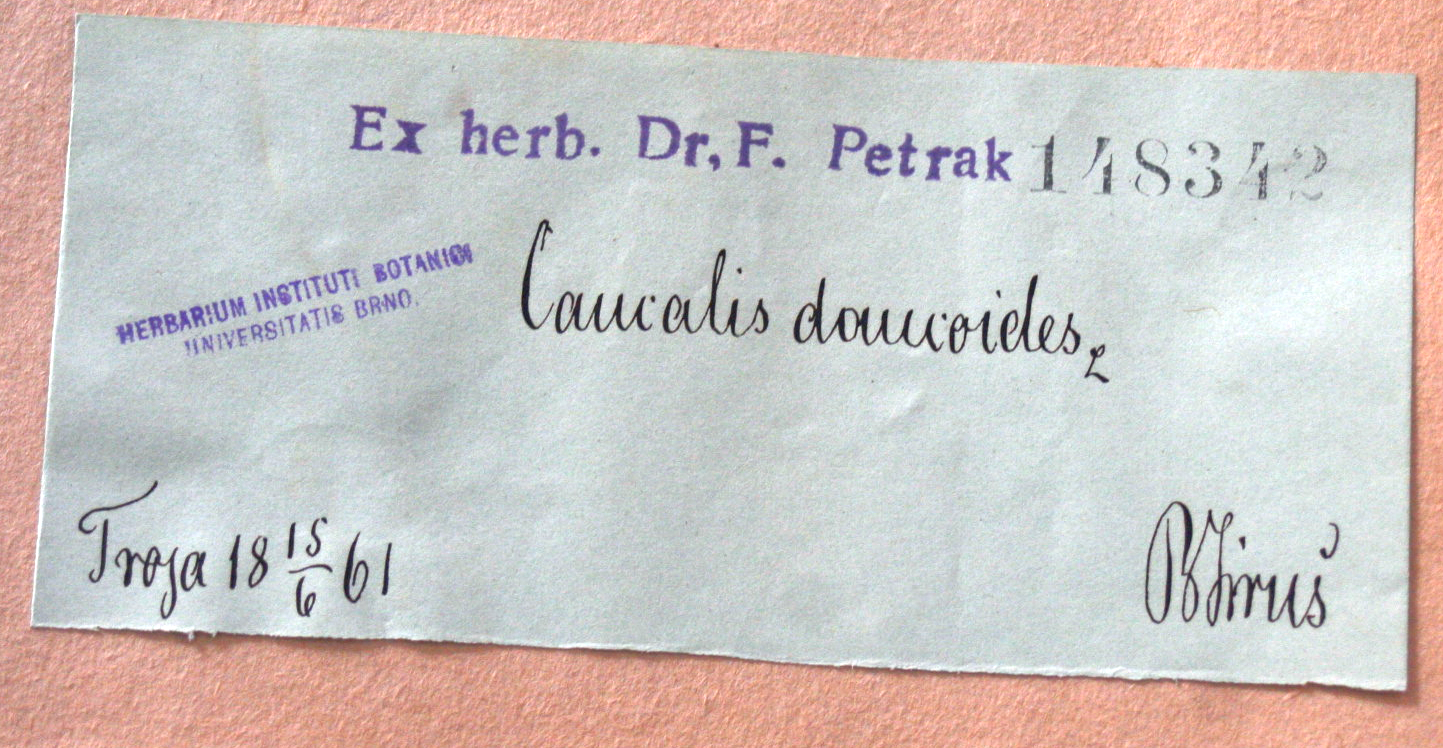 Ex herb. Dr, F. Petrak 148342
HERBARIUM INSTITUTI BOTANICI
UNIVERSITATIS BRNO.
Caucalis daucoides L
Troja 18 15/6 61
B Jiruš